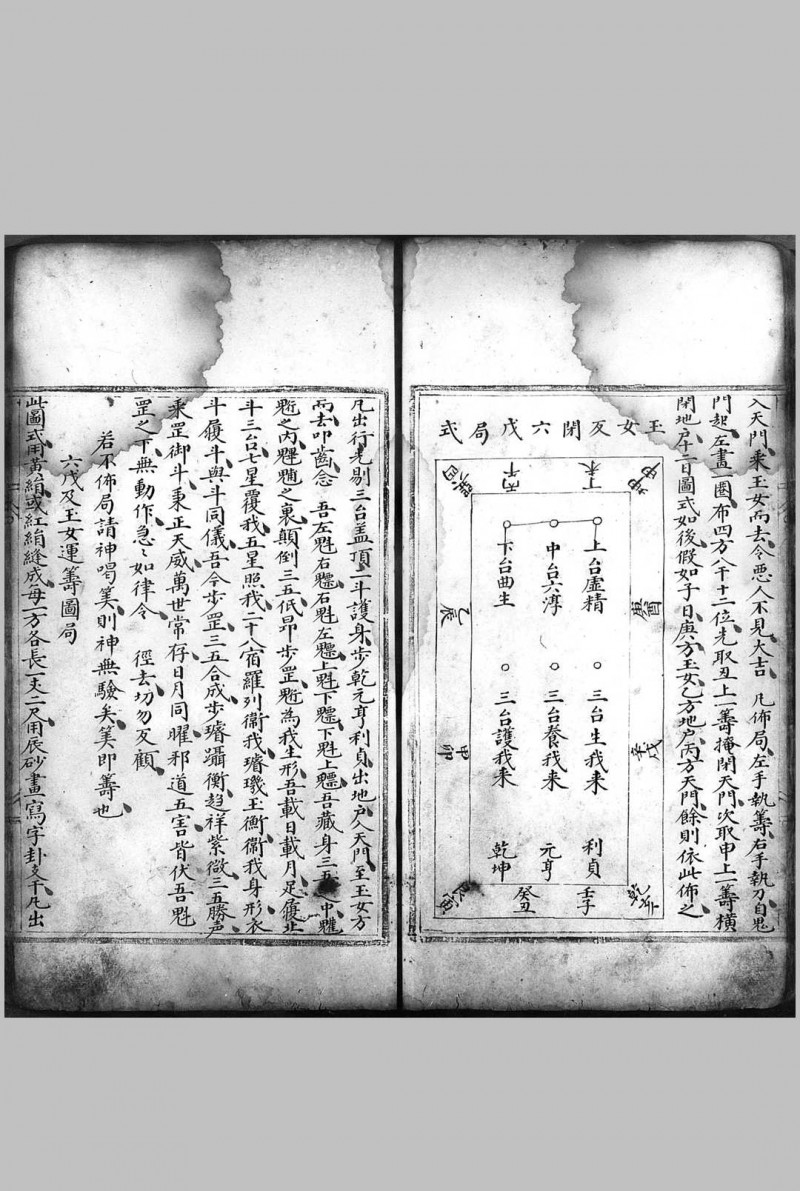 入天門乘玉女而去令惡人不見大吉 凡佈局左手執籌右手執刀自鬼
門起左畫一圈布四方八干十二位先取丑上一籌掩閉天門次取申上一籌橫
閉地戶二百圖式如後假如子日庚方玉女乙方地戶丙方天門餘則依此佈之
玉女反閉六戊局式
丙午
丁未
坤申
庚酉
辛戌
乾亥
壬子
癸丑
艮寅
甲卯
乙辰
巽巳
上台虛精
中台六淳
下台曲生
三台生我来
三台養我来
三台護我来
利貞
元亨
乾坤
凡出行先剔三台盖頂二斗護身步乾元亨利貞出地戶入天門至玉女方
而去叩齒念 吾左魁右魓右魁左魓上魁下魓下魁上魓吾藏身三五之中魓
魁之內魓魓之裏顛倒三五低昂步罡魁為我生形吾載日載月足履北
斗三台七星覆我五星照我二十八宿羅列衞我璿璣玉衡衞我身形衣
斗履斗與斗同儀吾今步罡三五合成步璿躡衡趍祥紫微三五勝声
乘罡御斗秉正天威萬世常存日月同曜邪道五害皆伏吾魁
罡之下無動作急〻如律令 徑去切勿反顧
若不佈局請神喝筭則神無驗矣筭即籌也
六戊反玉女運籌圖局
此圖式用黃絹或紅絹縫成每一方各長一丈二尺用辰砂畫寫字卦支干凡出